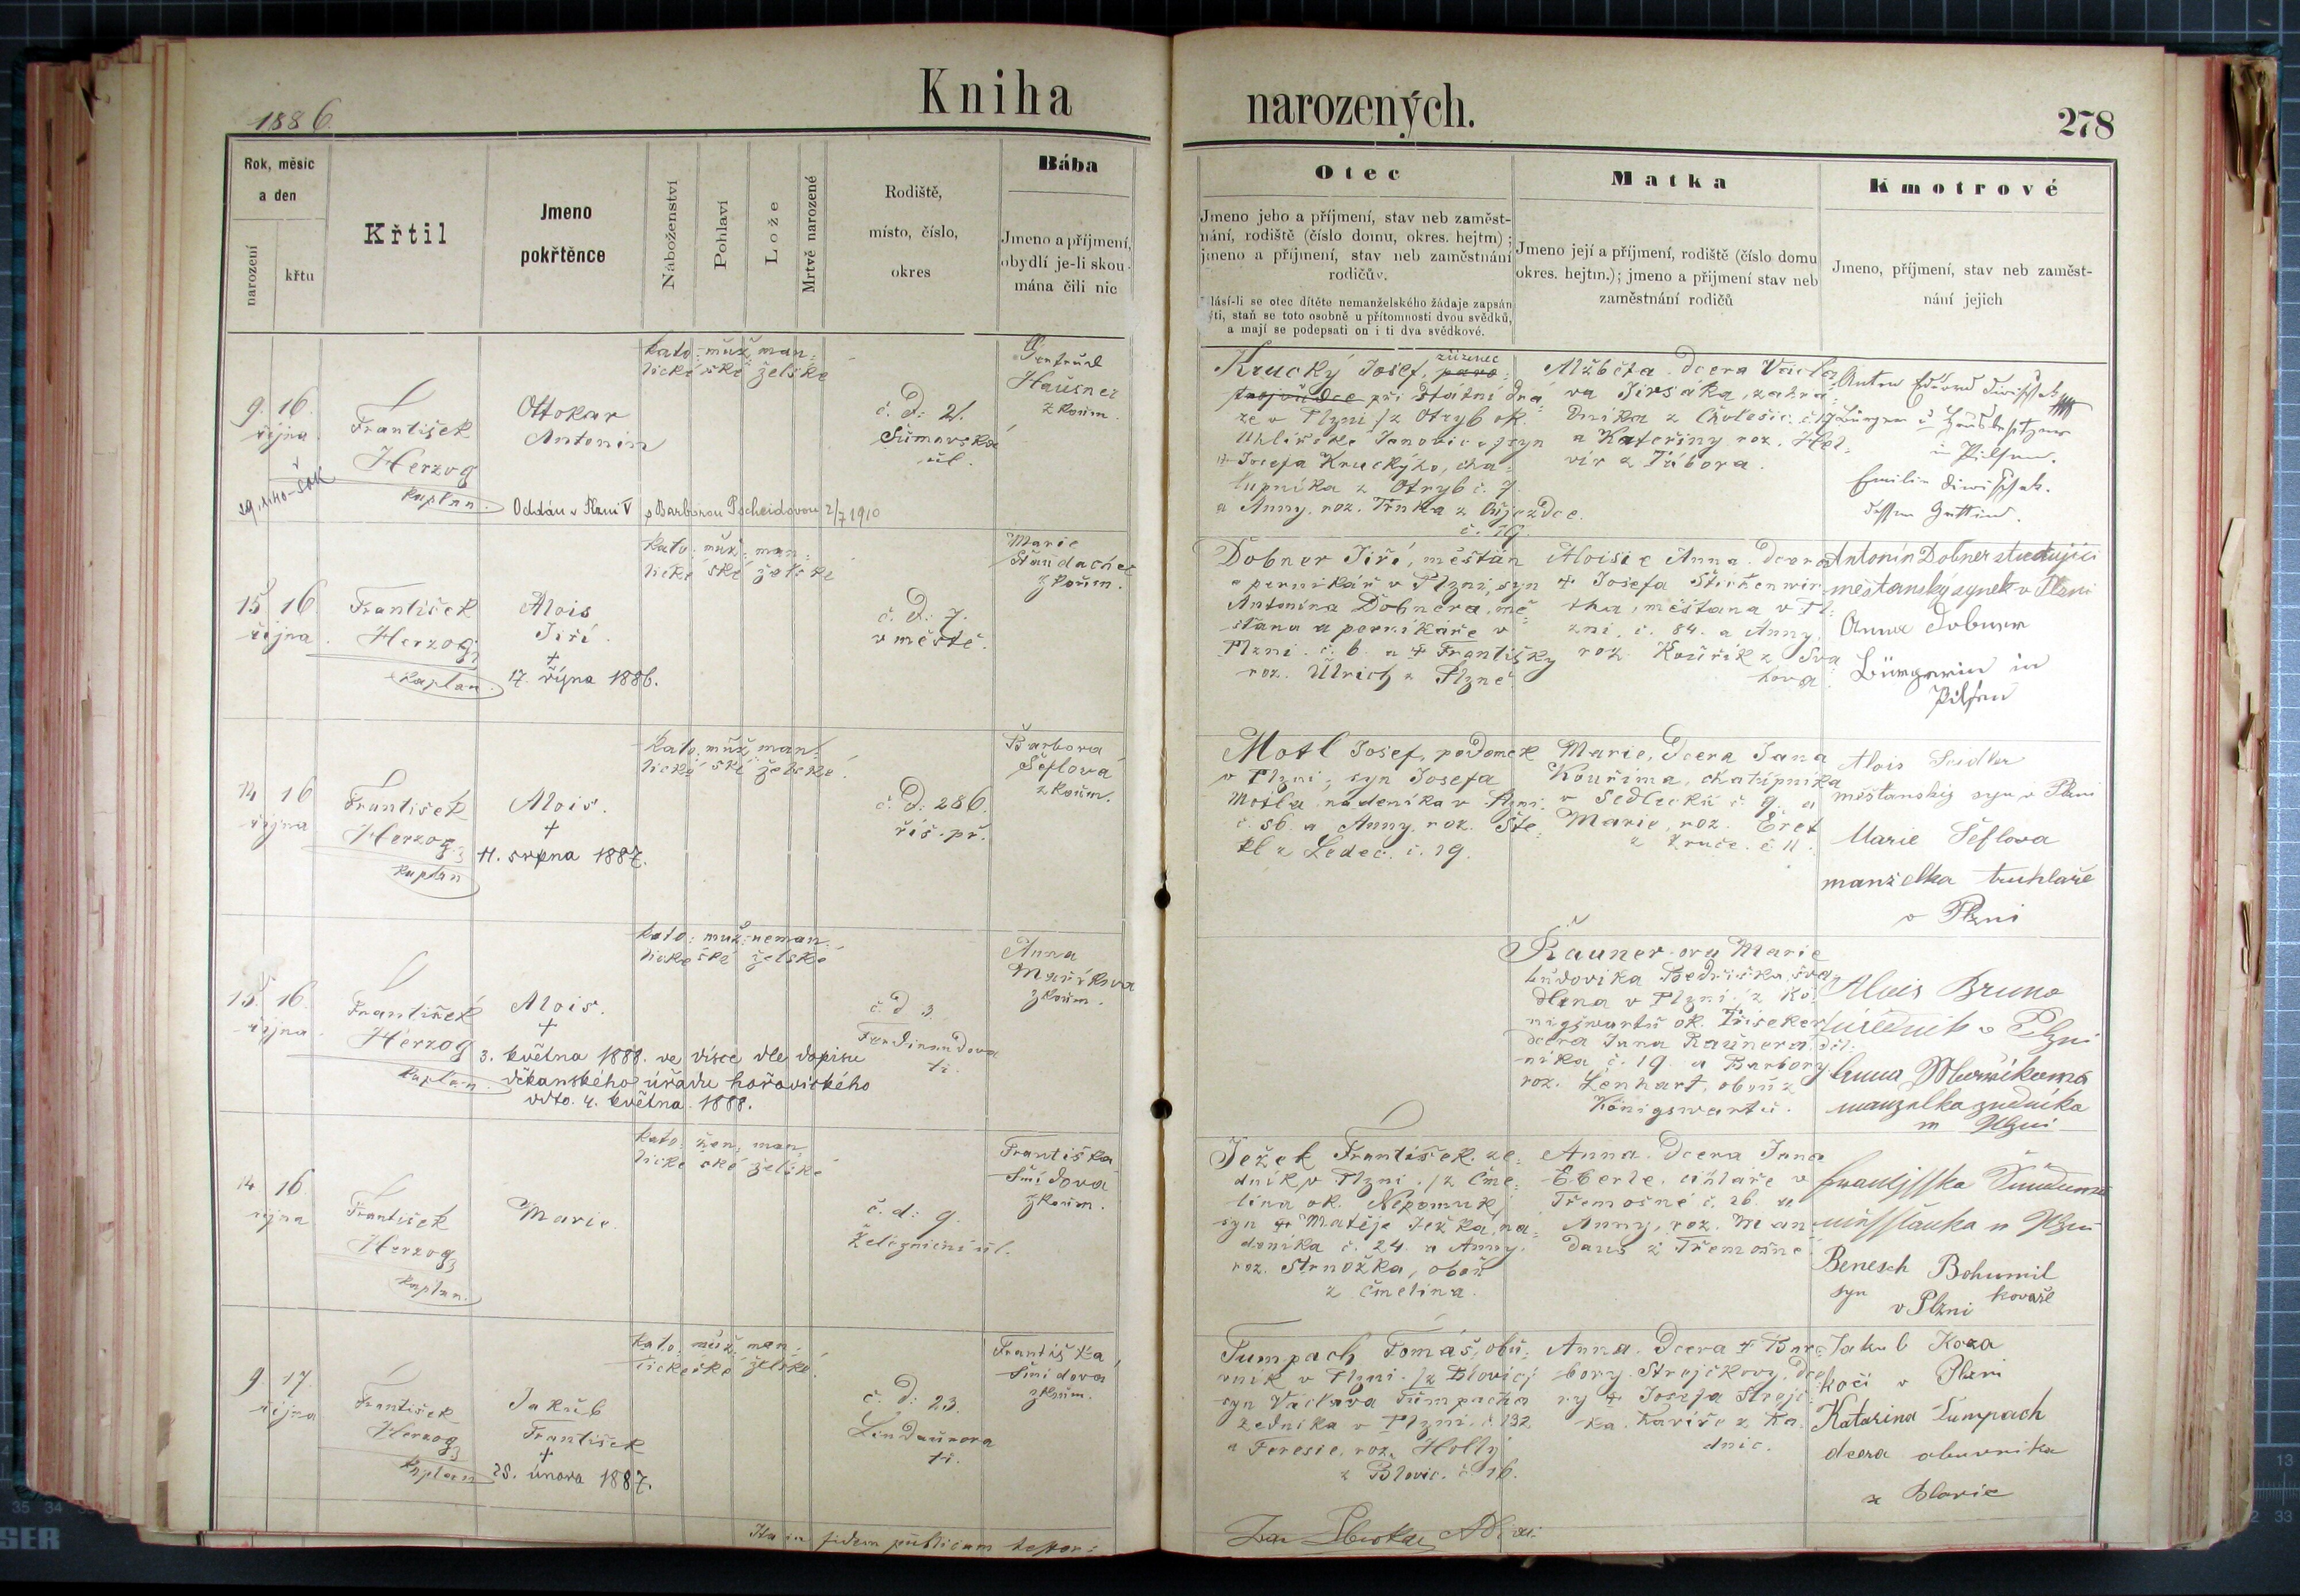 1886.
Kniha
narozených.
278
Rok, měsíc
a den
narození
křtu
Křtil
Jmeno
pokřtěnce
Náboženství
Pohlaví
Lože
Mrtvě narozené
Rodiště,
místo, číslo,
okres
Bába
Jmeno a příjmení,
obydlí je-li skou-
mána čili nic
Otec
Jmeno jeho a příjmení, stav neb zaměst-
nání, rodiště (číslo domu, okres. hejtm) ;
jmeno a příjmení, stav neb zaměstnání
rodičův.
lásí-li se otec dítěte nemanželského žádaje zapsán
ýti, staň se toto osobně u přítomnosti dvou svědků,
a mají se podepsati on i ti dva svědkové.
Matka
Jmeno její a příjmení, rodiště (číslo domu
okres. hejtm.); jmeno a přijmení stav neb
zaměstnání rodičů
Kmotrové
Jmeno, příjmení, stav neb zaměst-
nání jejich
9. 16.
října
František
Herzog
kaplan.
Ottokar
Antonín
Oddán v Plzni V s Barborou Pscheidovou 2/7 1910
kato: muž: man:
lické ské želské
č. D: 21.
Šumavská
ul.
Hausner
zkoum.
Krucký Josef, zřízenec
při státní drá
ze v Plzni /z Otryb ok.
Josefa Kruckýho, cha:
lupníka z Otryb č. 7
a Anny, roz. Trnka z Oujezdce.
Alžběta. dcera Václa
va Jirsáka, zahra:
dníka z Chotěšic č. 17
a Kateřiny roz. Hel:
vir z Tábora.
Anton
in Pilsen.
Emilie
dessen Gattin.
15. 16.
října.
František
Herzog
kaplan.
Alois
Jiří
†
17. října 1886.
kato: muž: man:
lické ské želské
č. D: 7.
v městě.
Marie
Staudacher
zkoum.
Dobner Jiří, měštan
a perníkář v Plzni, syn
Antonína Dobnera, mě
štana a perníkáře v
Plzni. č. 6. a † Františky
roz. Ulrich z Plzně
Aloisie Anna. dcera
† Josefa
tha, měštana v Pl:
zni. č. 84. a Anny,
roz. Kouřík z
Antonín Dobner studující
měštanský synek v Plzni
Anna Dobner
Bürgerin in
Pilsen
14 16
října
František
Herzog
kaplan
Alois.
†
11. srpna 1887.
kato: muž: man:
lické ské želské.
č. D: 286.
říš. př.
Barbora
Šeflová
zkoum.
Motl Josef, podomek
v Plzni, syn Josefa
Motla, nádeníka v Plzni
č. 56. a Anny, roz. Šte:
kl z Ledeč. č. 19.
Marie, dcera Jana
Kouřima, chalupníka
v Sedlecku č. 9. a
Marie, roz. Eret
z Zruče. č. 11.
Alois Seidler
měšťanský syn v Plzni
Marie Šeflova
manželka truhlaře
v Plzni
15. 16.
října
František
Herzog
kaplan.
Alois.
†
3. května 1888. ve Visce dle dopisu
děkanského úřadu hořovického
ddto. 4. května. 1888.
kato: muž: neman:
lické ské želské
č. D 3.
Ferdinandova
tř.
Anna
Maříkova
zkoum.
Rauner-ova Marie
Ludovika Bedřiška, svo
dcera Jana Raunera, děl.
níka č. 19. a Barbory
roz. Lenhart, obou z
Königswartu.
Alois Bruno
úředník v Plzni
Anna
manželka
v Plzni
14 16.
října
František
Herzog
kaplan.
Marie.
kato: žen, man
lické ské želské
č. d: 9.
Železniční ul.
Františka
Šmídova
zkoum.
Ježek František. ze:
dník v Plzni. /z Čme:
lína ok. Nepomuk/
syn † Matěje Ježka, ná:
deníka č. 24. a Anny.
roz. Strnožka, obou
z Čmelína.
Anna. dcera Jana
Eberle, cihláře v
Třemošné č. 26. a
Anny, roz. Man
daus z Třemošné
Benesch Bohumil
syn kovaře
v Plzni
9. 17.
října
František
Herzog
kaplan
Jakub
František
†
25. února 1887.
kato: muž: man:
lické ské želské.
č. d: 23.
Lindaurova
tř.
Františka
Šmídova
zkoum.
Tumpach Tomáš, obu:
vník v Plzni. /z Blovic/
syn Václava Tumpacha
zedníka v Plzni. č. 132
a Teresie, roz. Hollý
z Blovic. č. 16.
Anna. dcera † Bar
bory Strejčkovy, dce
ry † Josefa Strejč:
ka. kováře z Ka
dnic.
Jakub Koza
kočí v Plzni
Katarina Tumpach
dcera obuvníka
z Blovic
Ita in fidem publicam testor: